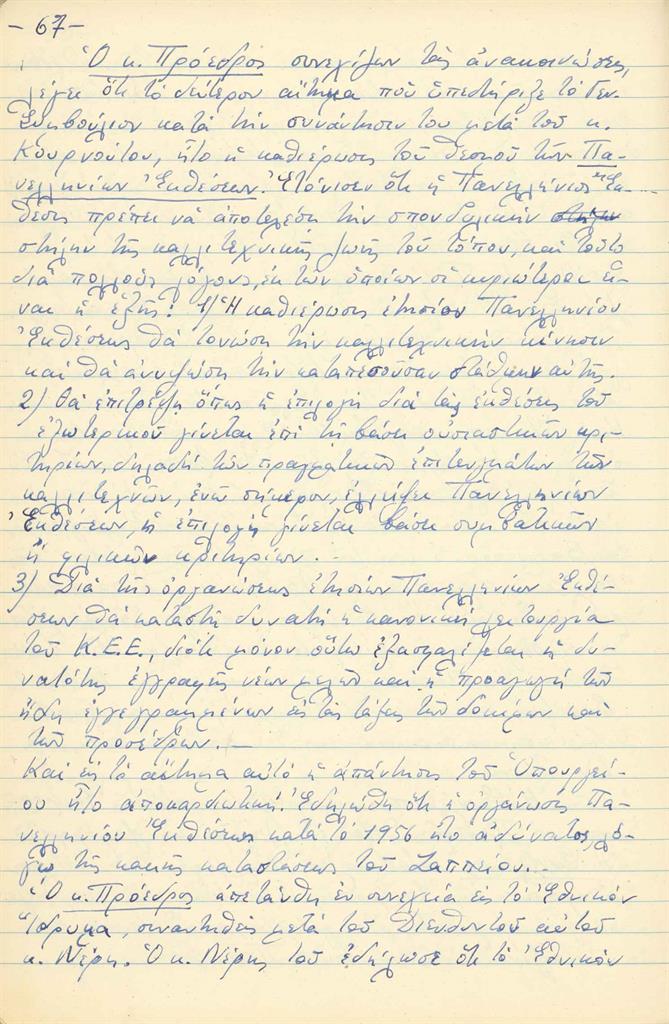 -67-
Ὁ κ. Πρόεδρος συνεχίζων τὰς ἀνακοινώσεις,
λέγει ὅτι τὸ δεύτερον αἴτημα ποὺ ὑπεστήριξε τὸ Γεν.
Συμβούλιον κατὰ τὴν συνάντησίν του μετὰ τοῦ κ.
Κουρνούτου, ἦτο ἡ καθιέρωσις τοῦ θεσμοῦ τῶν Πα-
νελληνίων Ἐκθέσεων. Ἐτόνισεν ὅτι ἡ Πανελλήνιος Ἔκ-
θεσις πρέπει νὰ ἀποτελέσῃ τὴν σπονδυλικὴν στήλην
στήλην τῆς καλλιτεχνικῆς ζωῆς τοῦ τόπου, καὶ τοῦτο
διὰ πολλοὺς λόγους, ἐκ τῶν ὁποίων οἱ κυριώτεροι εἶ-
ναι ἡ ἑξῆς: 1) Ἡ καθιέρωσις ἐτησίου Πανελληνίου
Ἐκθέσεως θὰ τονώσῃ τὴν καλλιτεχνικὴν κίνησιν
καὶ θὰ ἀνυψώσῃ τὴν καταπεσοῦσαν στάθμην αὐτῆς.
2) Θὰ ἐπιτρέψῃ ὅπως ἡ ἐπιλογὴ διὰ τὰς ἐκθέσεις τοῦ
ἐξωτερικοῦ γίνεται ἐπὶ τῇ βάσει οὐσιαστικῶν κρι-
τηρίων, δηλαδὴ τῶν πραγματικῶν ἐπιτευγμάτων τῶν
καλλιτεχνῶν, ἐνῶ σήμερον, ἐλλείψει Πανελληνίων
Ἐκθέσεων, ἡ ἐπιλογὴ γίνεται βάσει συμβατικῶν
ἢ φιλικῶν κριτηρίων. -
3) Διὰ τῆς ὀργανώσεως ἐτησίων Πανελληνίων Ἐκθέ-
σεων θὰ καταστῇ δυνατὴ ἡ κανονικὴ λειτουργία
τοῦ Κ.Ε.Ε., διότι μόνον οὕτω ἐξασφαλίζεται ἡ δυ-
νατότης ἐγγραφῆς νέων μελῶν καὶ ἡ προαγωγὴ τῶν
ἤδη ἐγγεγραμμένων εἰς τὰς τάξεις τῶν δοκίμων καὶ
τῶν προσέδρων. -
Καὶ εἰς τὸ αἴτημα αὐτὸ ἡ ἀπάντησις τοῦ Ὑπουργεί-
ου ἦτο ἀποκαρδιωτική. Ἐδηλώθη ὅτι ἡ ὀργάνωσις Πα-
νελληνίου Ἐκθέσεως κατὰ τὸ 1956 ἦτο ἀδύνατος, λό-
γῳ τῆς κακῆς καταστάσεως τοῦ Ζαππείου. -
Ὁ κ. Πρόεδρος ἀπετάνθη ἐν συνεχείᾳ εἰς τὸ Ἐθνικὸν
Ἵδρυμα, συναντηθεὶς μετὰ τοῦ Διευθυντοῦ αὐτοῦ
κ. Νέρη. Ὁ κ. Νέρης τοῦ ἐδήλωσε ὅτι τὸ Ἐθνικὸν